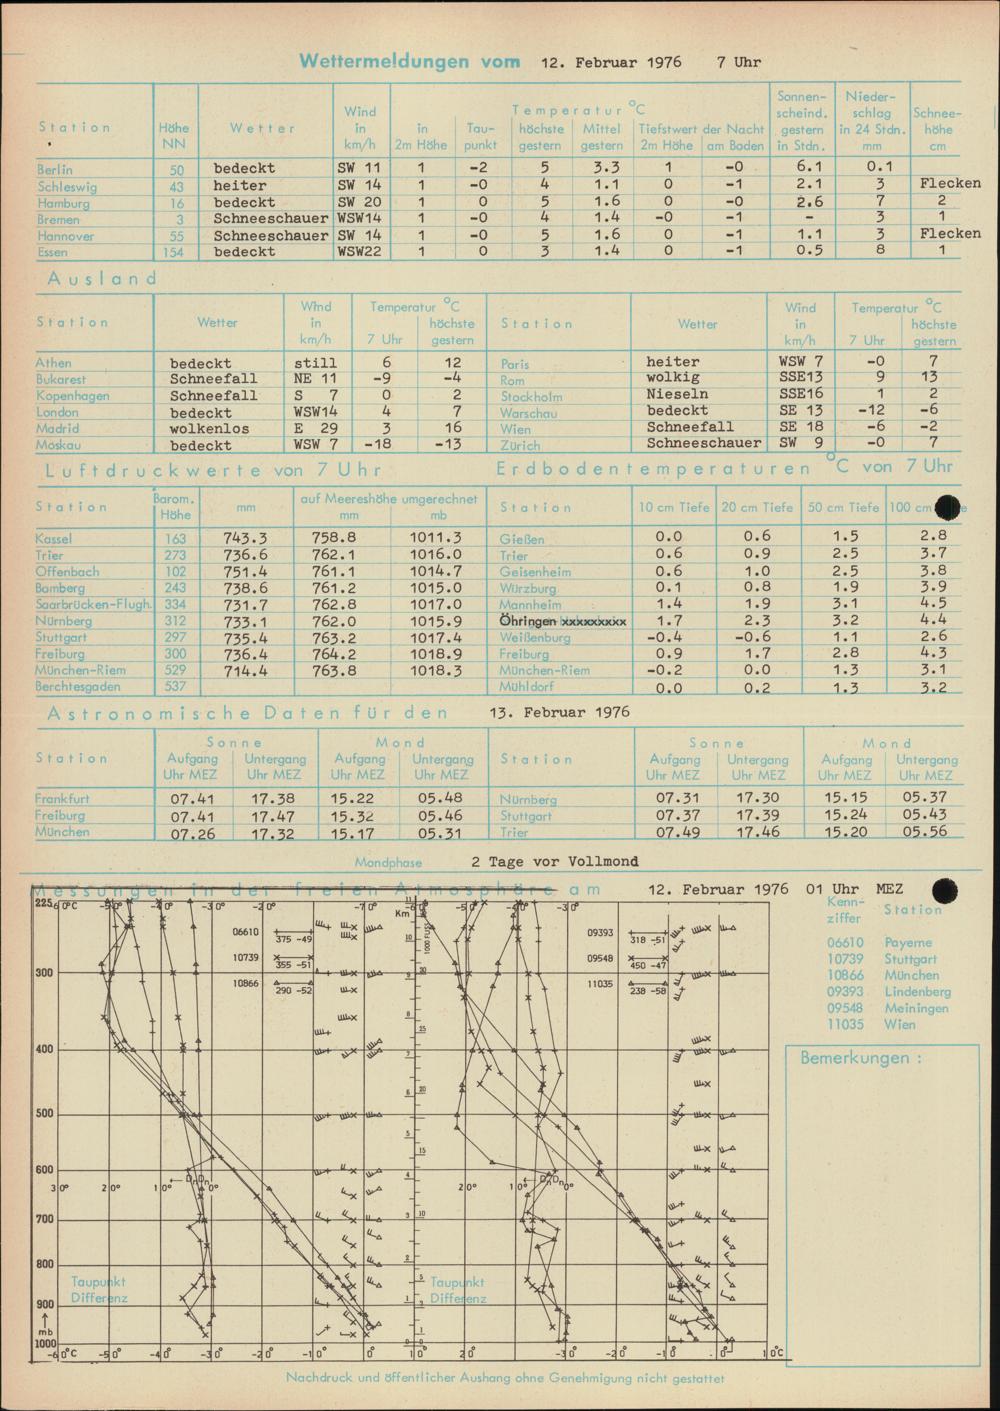 Wettermeldungen vom 12. Februar 1976 7 Uhr
Station Höhe NN Wetter Wind in km/h Temperatur °C Sonnenscheind. gestern in Stdn. Niederschlag in 24 Stdn. mm Schneehöhe cm
in 2m Höhe Taupunkt höchste gestern Mittel gestern Tiefstwert der Nacht 2m Höhe am Boden
Berlin 50 bedeckt SW 11 1 -2 5 3.3 1 -0 6.1 0.1
Schleswig 43 heiter SW 14 1 -0 4 1.1 0 -1 2.1 3 Flecken
Hamburg 16 bedeckt SW 20 1 0 5 1.6 0 -0 2.6 7 2
Bremen 3 Schneeschauer WSW14 1 -0 4 1.4 -0 -1 - 3 1
Hannover 55 Schneeschauer SW 14 1 -0 5 1.6 0 -1 1.1 3 Flecken
Essen 154 bedeckt WSW22 1 0 3 1.4 0 -1 0.5 8 1
Ausland
Station Wetter Wind in km/h Temperatur °C 7 Uhr höchste gestern Station Wetter Wind in km/h Temperatur °C 7 Uhr höchste gestern
Athen bedeckt still 6 12 Paris heiter WSW 7 -0 7
Bukarest Schneefall NE 11 -9 -4 Rom wolkig SSE13 9 13
Kopenhagen Schneefall S 7 0 2 Stockholm Nieseln SSE16 1 2
London bedeckt WSW14 4 7 Warschau bedeckt SE 13 -12 -6
Madrid wolkenlos E 29 3 16 Wien Schneefall SE 18 -6 -2
Moskau bedeckt WSW 7 -18 -13 Zürich Schneeschauer SW 9 -0 7
Luftdruckwerte von 7 Uhr Erdbodentemperaturen °C von 7 Uhr
Station Barom. Höhe mm auf Meereshöhe umgerechnet mm mb Station 10 cm Tiefe 20 cm Tiefe 50 cm Tiefe 100 cm
Kassel 163 743.3 758.8 1011.3 Gießen 0.0 0.6 1.5 2.8
Trier 273 736.6 762.1 1016.0 Trier 0.6 0.9 2.5 3.7
Offenbach 102 751.4 761.1 1014.7 Geisenheim 0.6 1.0 2.5 3.8
Bamberg 243 738.6 761.2 1015.0 Würzburg 0.1 0.8 1.9 3.9
Saarbrücken-Flugh. 334 731.7 762.8 1017.0 Mannheim 1.4 1.9 3.1 4.5
Nürnberg 312 733.1 762.0 1015.9 Öhringen xxxxxxxxx 1.7 2.3 3.2 4.4
Stuttgart 297 735.4 763.2 1017.4 Weißenburg -0.4 -0.6 1.1 2.6
Freiburg 300 736.4 764.2 1018.9 Freiburg 0.9 1.7 2.8 4.3
München-Riem 529 714.4 763.8 1018.3 München-Riem -0.2 0.0 1.3 3.1
Berchtesgaden 537 Mühldorf 0.0 0.2 1.3 3.2
Astronomische Daten für den 13. Februar 1976
Station Sonne Aufgang Uhr MEZ Untergang Uhr MEZ Mond Aufgang Uhr MEZ Untergang Uhr MEZ Station Sonne Aufgang Uhr MEZ Untergang Uhr MEZ Mond Aufgang Uhr MEZ Untergang Uhr MEZ
Frankfurt 07.41 17.38 15.22 05.48 Nürnberg 07.31 17.30 15.15 05.37
Freiburg 07.41 17.47 15.32 05.46 Stuttgart 07.37 17.39 15.24 05.43
München 07.26 17.32 15.17 05.31 Trier 07.49 17.46 15.20 05.56
Mondphase 2 Tage vor Vollmond
Messungen in der freien Atmosphäre am 12. Februar 1976 01 Uhr MEZ
Kennziffer Station
06610 Payerne
10739 Stuttgart
10866 München
09393 Lindenberg
09548 Meiningen
11035 Wien
Bemerkungen :
225 -60°C -50° -40° -30° -20° -10° -50° -40° -30°
Km 1000 FUSS
06610 375 -49
10739 355 -51
10866 290 -52
09393 318 -51
09548 450 -47
11035 238 -58
300
400
500
600
30° 20° 10° 0° 20° 10° 0°
700
800
Taupunkt Differenz Taupunkt Differenz
900
mb
1000
-60°C -50° -40° -30° -20° -10° 0° 10° 20° -40° -30° -20° -10° 0° 10°C
Nachdruck und öffentlicher Aushang ohne Genehmigung nicht gestattet